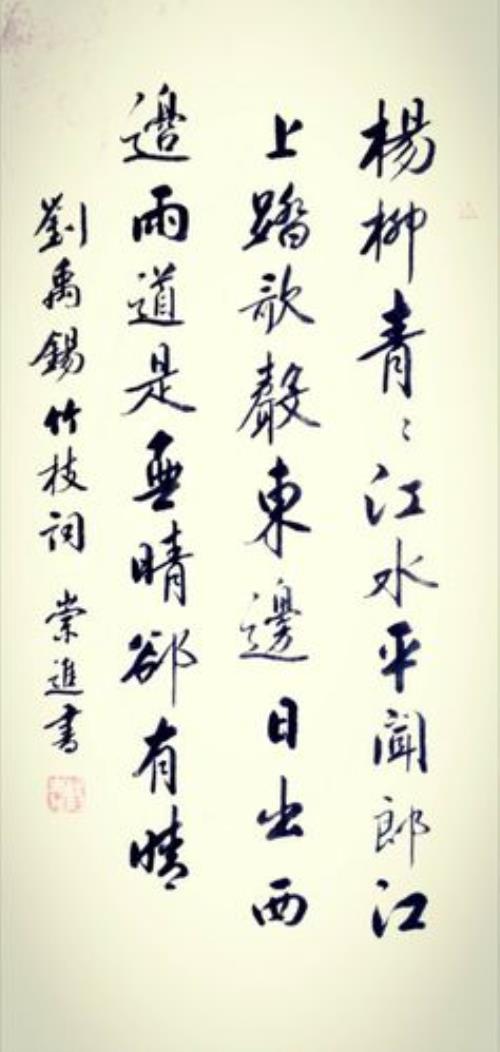 楊柳青〻江水平聞郎江
上踏歌聲東邊日出西
邊雨道是無晴郤有晴
劉禹錫竹枝詞 崇進書